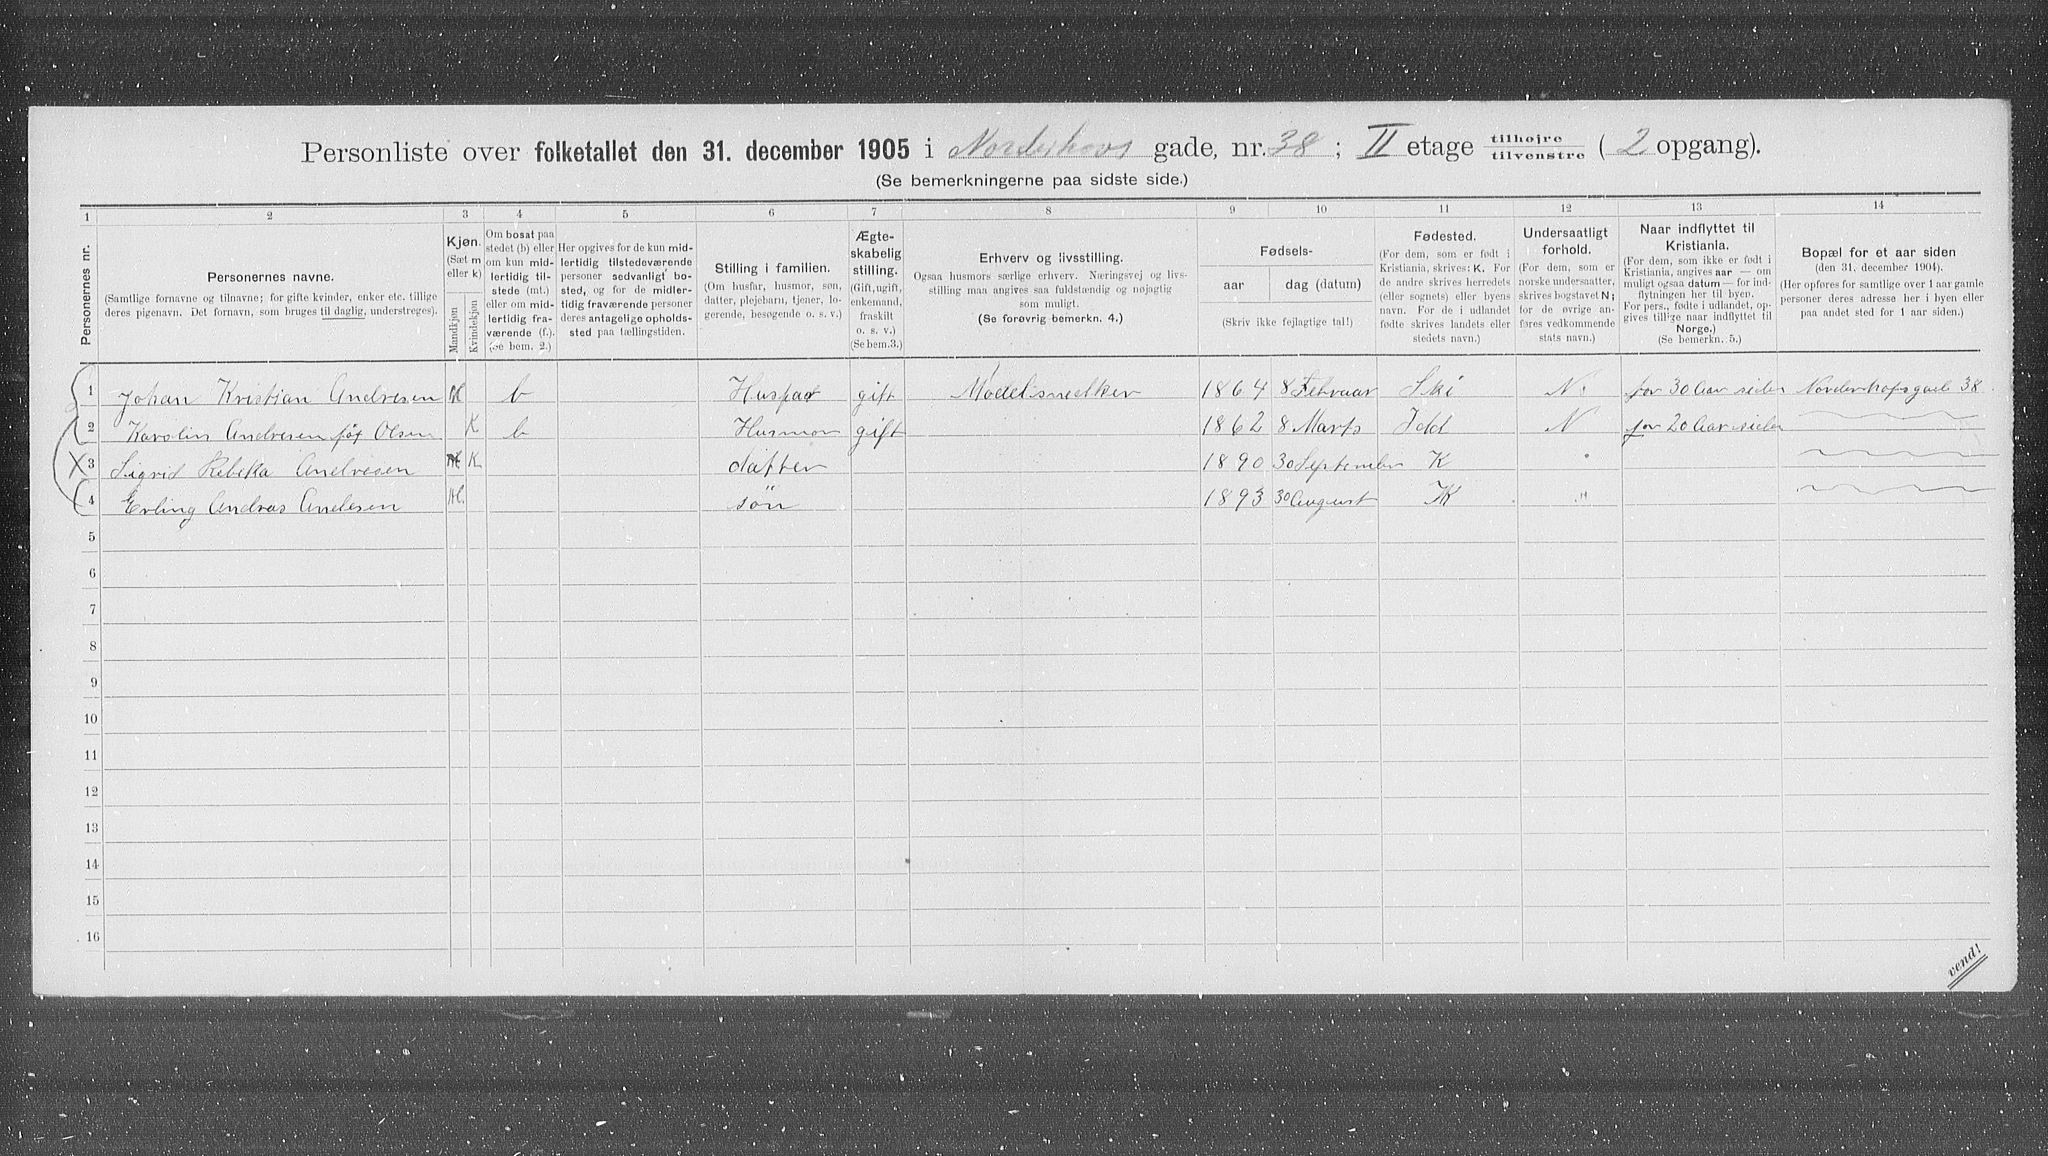 Personliste over folketallet den 31. december 1905 i Norderhovs gade, nr. 38 ; II etage tilhøjre tilvenstre ( 2 opgang).
(Se bemerkningerne paa sidste side.)
1 2 3 4 5 6 7 8 9 10 11 12 13 14
Personernes nr.
Personernes navne.
(Samtlige fornavne og tilnavne; for gifte kvinder, enker etc. tillige
deres pigenavn. Det fornavn, som bruges til daglig, understreges).
Kjøn.
(Sæt m
eller k)
Mandkjøn
Kvindekjøn
Om bosat paa
stedet (b) eller
om kun mid-
lertidig til-
stede (mt.)
eller om mid-
lertidig fra-
værende (f.).
(Se bem. 2.)
Her opgives for de kun mid-
lertidig tilstedeværende
personer sedvanligt bo-
sted, og for de midler-
tidig fraværende personer
deres antagelige opholds-
sted paa tællingstiden.
Stilling i familien.
(Om husfar, husmor, søn,
datter, plejebarn, tjener, lo-
gerende, besøgende o. s. v.)
Ægte-
skabelig
stilling.
(Gift, ugift,
enkemand,
fraskilt
o. s. v.)
(Se bem.3.)
Erhverv og livsstilling.
Ogsaa husmors særlige erhverv. Næringsvej og livs-
stilling maa angives saa fuldstændig og nøjagtig
som muligt.
(Se forøvrig bemerkn. 4.)
Fødsels-
aar dag (datum)
(Skriv ikke fejlagtige tal!)
Fødested.
(For dem, som er født i
Kristiania, skrives: K. For
de andre skrives herredets
(eller sognets) eller byens
navn. For de i udlandet
fødte skrives landets eller
stedets navn.)
Undersaatligt
forhold.
(For dem, som er
norske undersaatter,
skrives bogstavet N;
for de øvrige an-
føres vedkommende
stats navn.)
Naar indflyttet til
Kristiania.
(For dem, som ikke er født i
Kristiania, angives aar — om
muligt ogsaa datum — for ind-
flytningen her til byen.
For pers., fødte i udlandet, op-
gives tillige naar indflyttet til
Norge.)
(Se bemerkn. 5.)
Bopæl for et aar siden
(den 31. december 1904).
(Her opføres for samtlige over 1 aar gamle
personer deres adresse her i byen eller
paa andet sted for 1 aar siden.)
1 Johan Kristian Andresen M b Huspar gift Modelsnedker 1864 8 Februar Ski N. for 30 Aar siden Norderhofsgade 38
2 Karolin Andresen føt Olsen K b Husmor gift 1862 8 Marts Idd N for 20 Aar siden
X 3 Sigrid Rebeka Andresen K datter 1890 30 September K "
4 Erling Andras Andesen M. søn 1893 30 August K "
5
6
7
8
9
10
11
12
13
14
15
16
vend!